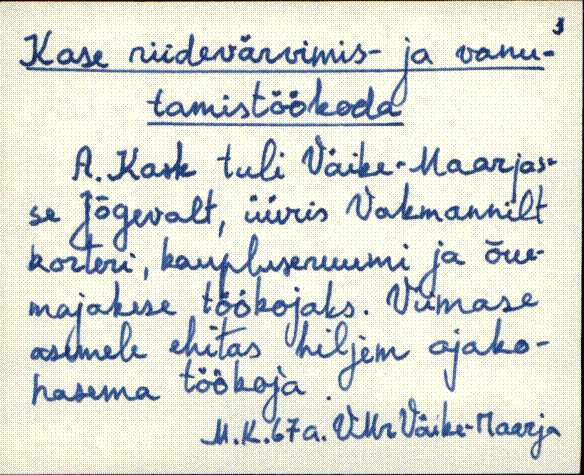 3
Kase riidevärvimis- ja vanu-
tamistöökoda
A. Kask tuli Väike-Maarjas-
se Jõgevalt, üüris Vakmannilt
korteri, kaupluseruumi ja õue-
majakese töökojaks. Viimase
asemele ehitas hiljem ajako-
hasema töökoja.
M.K. 67 a. VMr Väike-Maarja